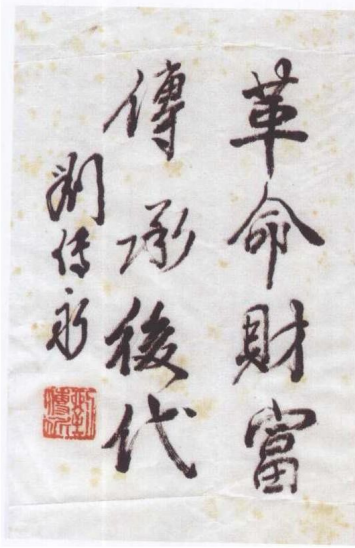 革命財富
傳承後代
刘传新